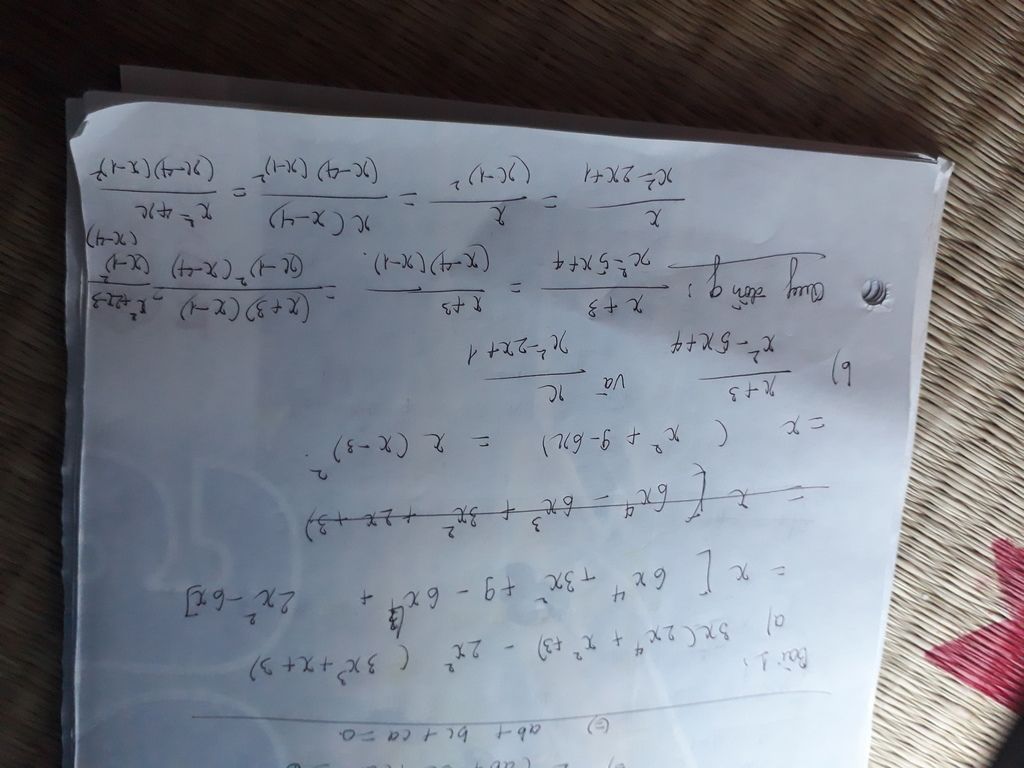 (=) ab + bc + ca = 0
Bài 1:
a) 3x(2x⁴ + x² + 3) - 2x² (3x³ + x + 3)
= x [ 6x⁴ + 3x² + 9 - 6x⁴ + 2x² - 6x]
= x [ 6x⁴ - 6x³ + 3x² + 2x + 3)
= x ( x² + 9 - 6x) = x (x - 3)².
b) (x+3)/(x² - 5x + 4) và x/(x² - 2x + 1)
Quy đồng: (x+3)/(x² - 5x + 4) = (x+3)/((x-4)(x-1)) = ((x+3)(x-1))/((x-1)²(x-4)) = (x² + 2x - 3)/((x-1)²(x-4))
x/(x² - 2x + 1) = x/(x-1)² = (x(x-4))/((x-4)(x-1)²) = (x² - 4x)/((x-4)(x-1)²)